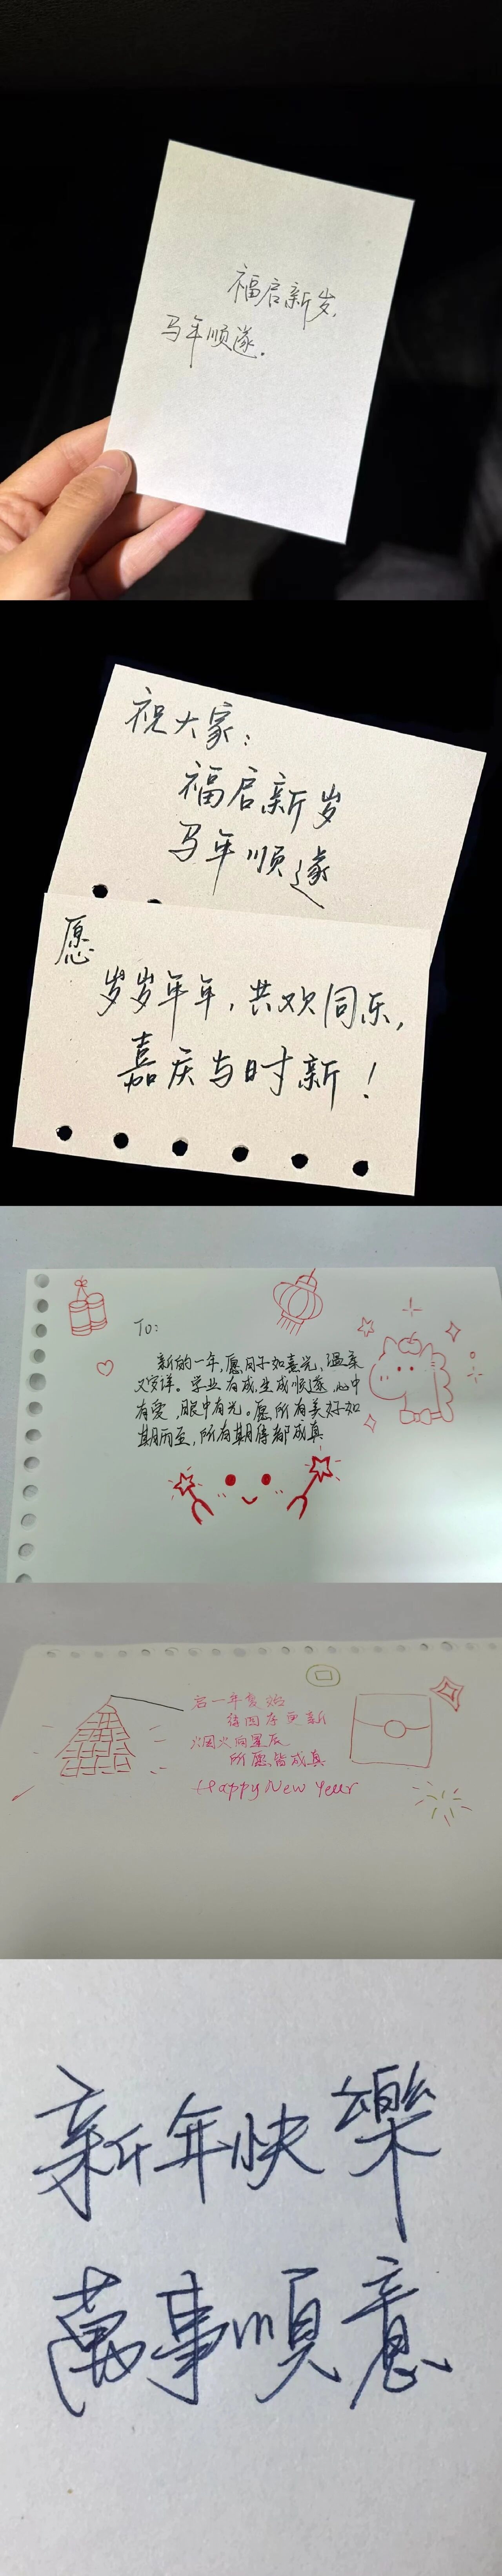 福启新岁,
马年顺遂.
祝大家:
福启新岁
马年顺遂
愿
岁岁年年,共欢同乐,
嘉庆与时新!
To:
新的一年,愿同子如喜光,温柔
又安详。学业有成,生成顺遂,心中
有爱,眼中有光。愿所有美好如
期而至,所有期待都成真
启一年复始
待图存更新
烟火向星辰
所愿皆成真
Happy New Year
新年快樂
萬事順意